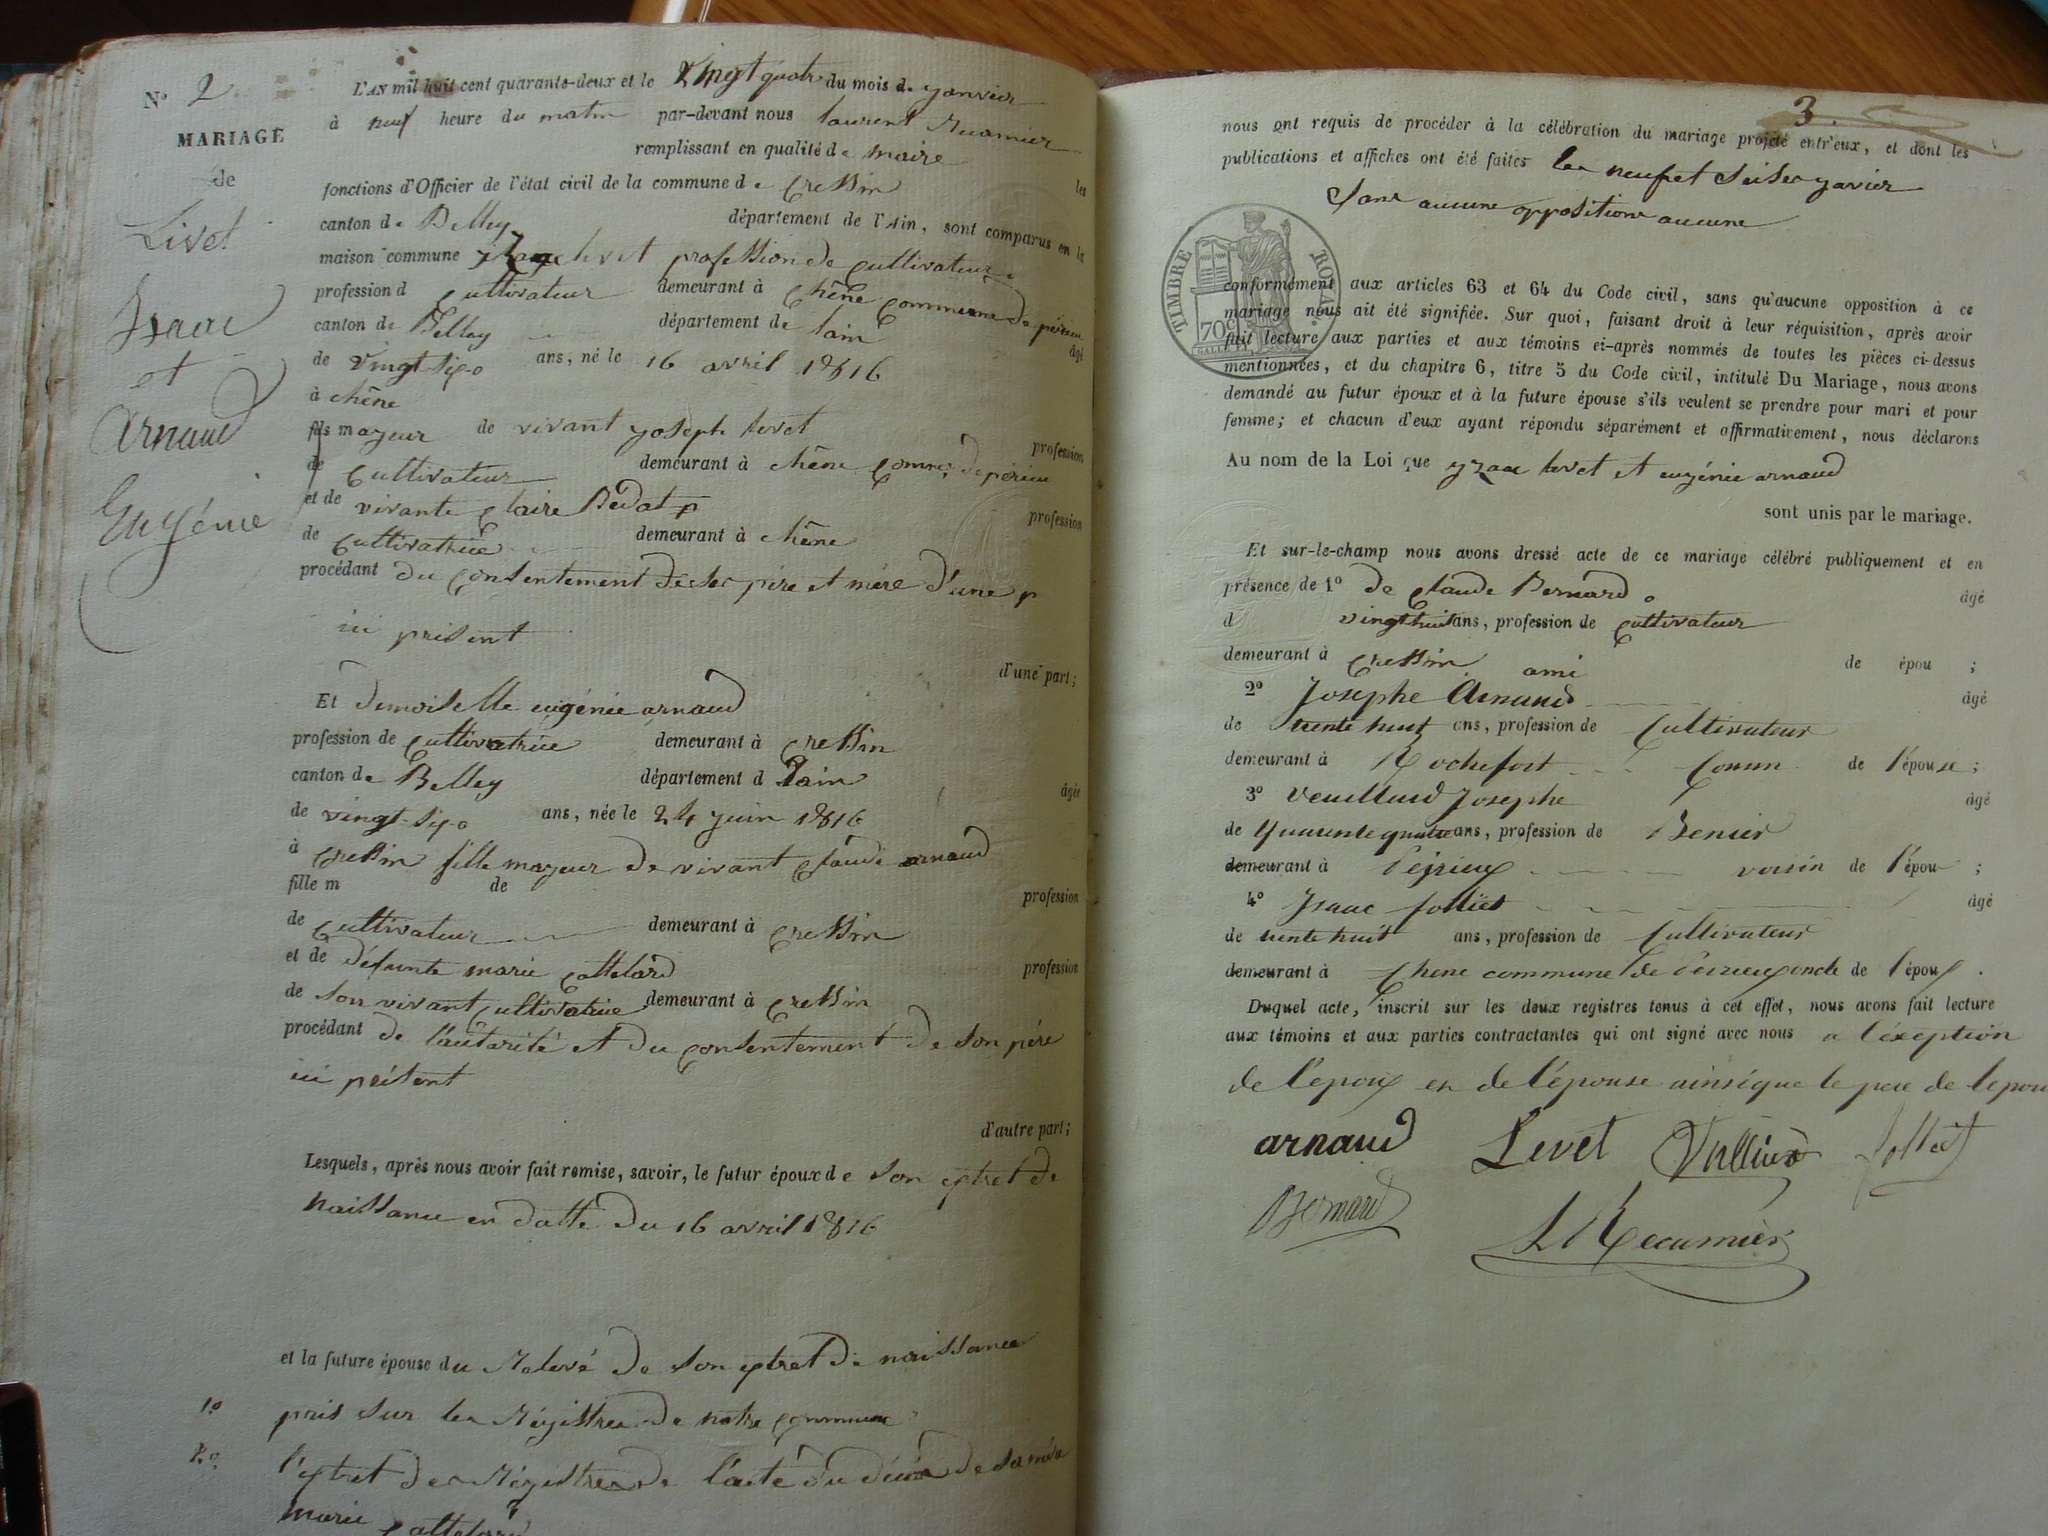 N.o 2
MARIAGE
de
Livet
Isaac
et
Arnaud
Eugénie
L'AN mil huit cent quarante-deux et le vingt quatre du mois de janvier
à neuf heure du matin par-devant nous laurent
remplissant en qualité de maire les
fonctions d'Officier de l'état civil de la commune de Cressin
canton de Belley département de l'Ain, sont comparus en la
maison commune profession de cultivateur
profession d cultivateur demeurant à chêne commune de
canton de Belley département de lain âgé
de vingt six ans, né le 16 avril 1816
à chêne
fils mayeur de vivant yoseph levet profession
de cultivateur demeurant à chêne
et de vivante claire profession
de cultivatrice demeurant à chêne
procédant du consentement de ses père et mère d'une p
ici présent
d'une part;
Et demoiselle eugénie arnaud
profession de cultivatrice demeurant à cressin
canton de Belley département d lain âgée
de vingt-six ans, née le 24 juin 1816
à cressin fille mayeur de vivant claude arnaud
fille m de profession
de cultivateur demeurant à cressin
et de défunte marie cattelard profession
de son vivant cultivatrice demeurant à cressin
procédant de l'autarité et du consentement de son père
ici présent
d'autre part;
Lesquels, après nous avoir fait remise, savoir, le futur époux de son extret de
naissance en datte du 16 avril 1816
et la future épouse du Relevé de son extret de naissance
1o pris sur les Régistres de notre commune
2o l'extret des Régistres de l'acte du décès de sa mère
marie cattelard
3
nous ont requis de procéder à la célébration du mariage projeté entr'eux, et dont les
publications et affiches ont été faites les neuf et seise
sans aucune opposition aucune
TIMBRE ROYAL
70c
conformément aux articles 63 et 64 du Code civil, sans qu'aucune opposition à ce
mariage nous ait été signifiée. Sur quoi, faisant droit à leur réquisition, après avoir
fait lecture aux parties et aux témoins ci-après nommés de toutes les pièces ci-dessus
mentionnées, et du chapitre 6, titre 5 du Code civil, intitulé Du Mariage, nous avons
demandé au futur époux et à la future épouse s'ils veulent se prendre pour mari et pour
femme; et chacun d'eux ayant répondu séparément et affirmativement, nous déclarons
Au nom de la Loi que yzaac levet et eugénie arnaud
sont unis par le mariage.
Et sur-le-champ nous avons dressé acte de ce mariage célébré publiquement et en
présence de 1o de claude Bernard âgé
d vingt huit ans, profession de cultivateur
demeurant à cressin ami de épou ;
2o Josephe Arnaud âgé
de trente huit ans, profession de Cultivateur
demeurant à Rochefort de l'épouse;
3o Josephe âgé
de quarante quatre ans, profession de
demeurant à voisin de l'épou ;
4o Isaac âgé
de trente huit ans, profession de Cultivateur
demeurant à Chene commune de oncle de l'époux .
Duquel acte, inscrit sur les deux registres tenus à cet effet, nous avons fait lecture
aux témoins et aux parties contractantes qui ont signé avec nous a l'éxeption
de l'epoux en de l'épouse ainsi que le pere de lepou
arnaud Levet
Bernard
L Récamier